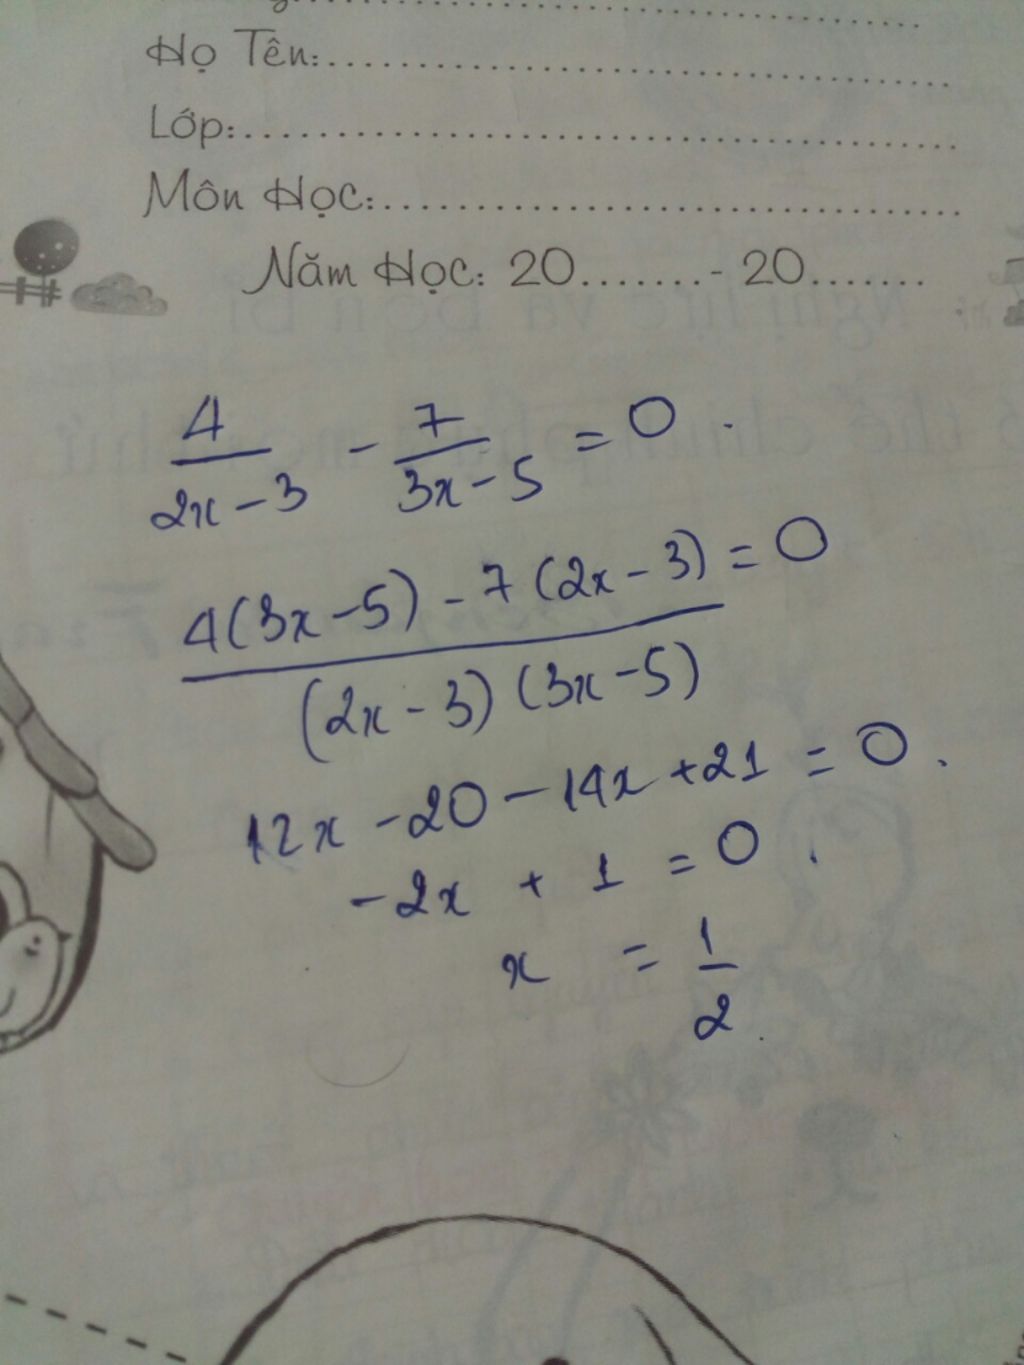 Họ Tên:
Lớp:
Môn Học:
Năm Học: 20........ - 20........
4/(2x - 3) - 7/(3x - 5) = 0 .
(4(3x - 5) - 7(2x - 3))/((2x - 3)(3x - 5)) = 0
12x - 20 - 14x + 21 = 0 .
-2x + 1 = 0 .
x = 1/2 .